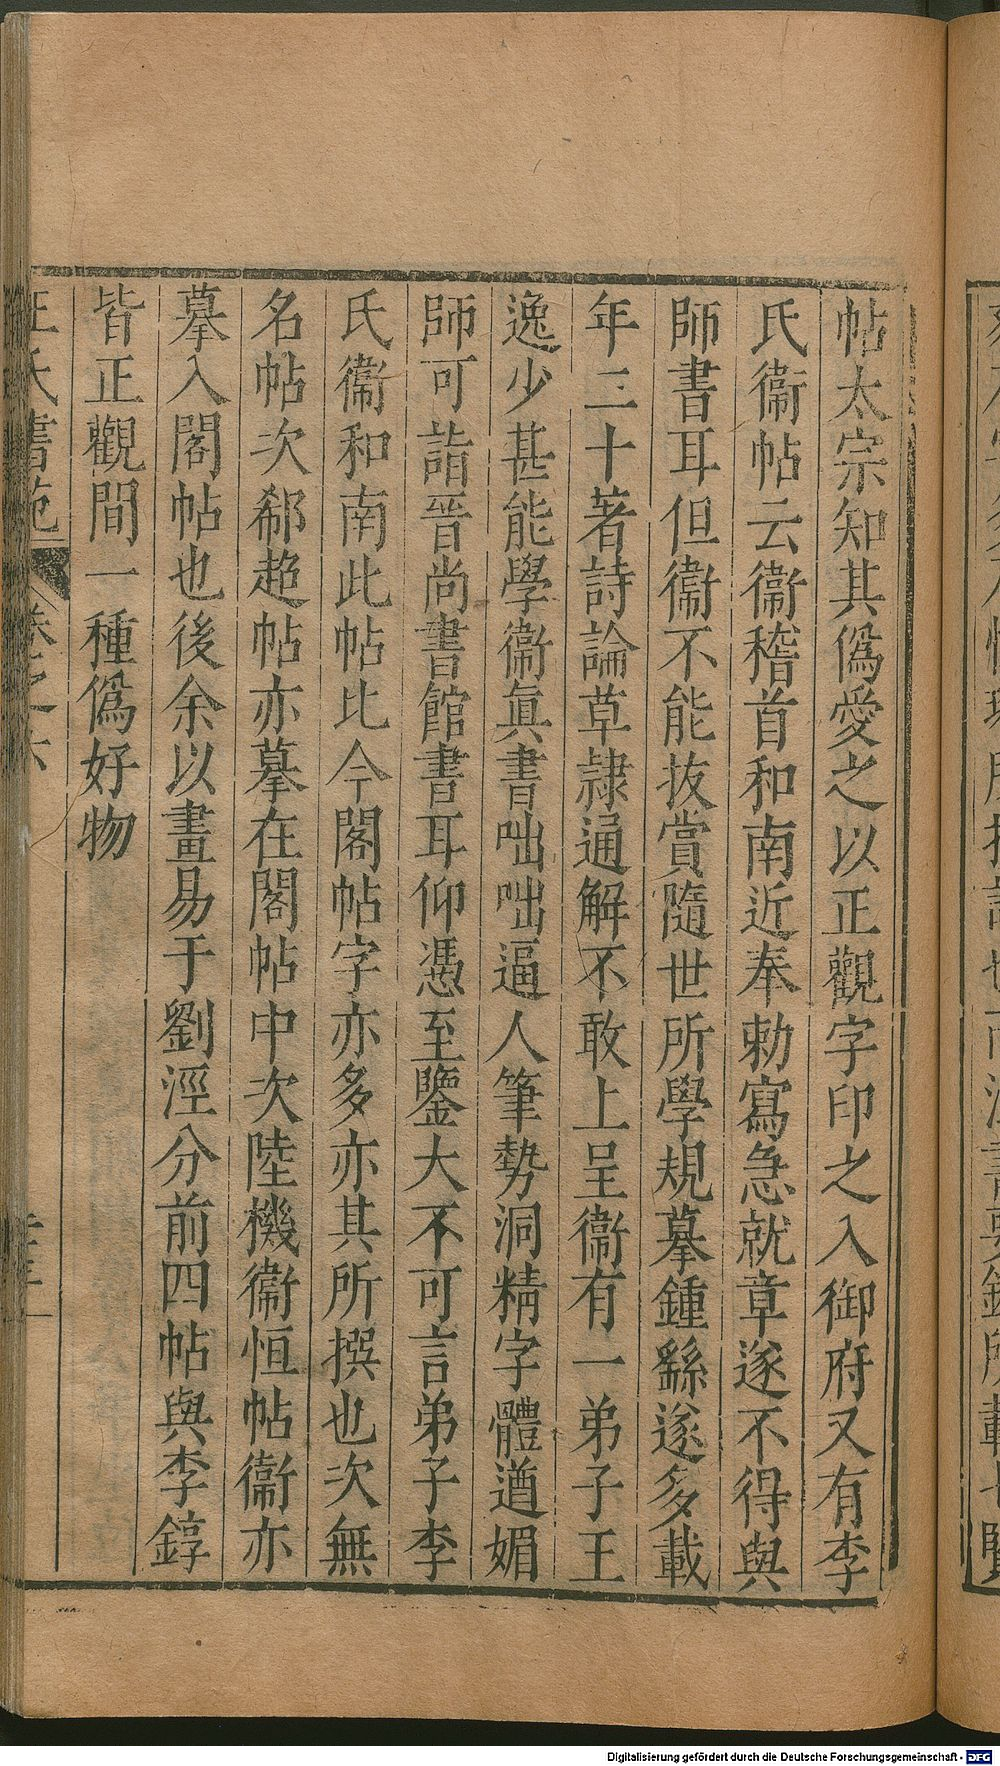 帖太宗知其僞愛之以正觀字印之入御府又有李
氏衞帖云衞稽首和南近奉勅寫急就章遂不得與
師書耳但衞不能拔賞隨世所學規摹鍾繇遂多載
年二十著詩論草隷通解不敢上呈衞有一弟子王
逸少甚能學衞眞書咄咄逼人筆勢洞精字體遒媚
師可詣晉尚書館書耳仰憑至鑒大不可言弟子李
氏衞和南此帖比今閣帖字亦多亦其所撰也次無
名帖次郗超帖亦摹在閣帖中次陸機衞恒帖衞亦
摹入閣帖也後余以畫易于劉涇分前四帖與李錞
皆正觀間一種僞好物
王氏書苑 卷之六
Digitalisierung gefördert durch die Deutsche Forschungsgemeinschaft - DFG